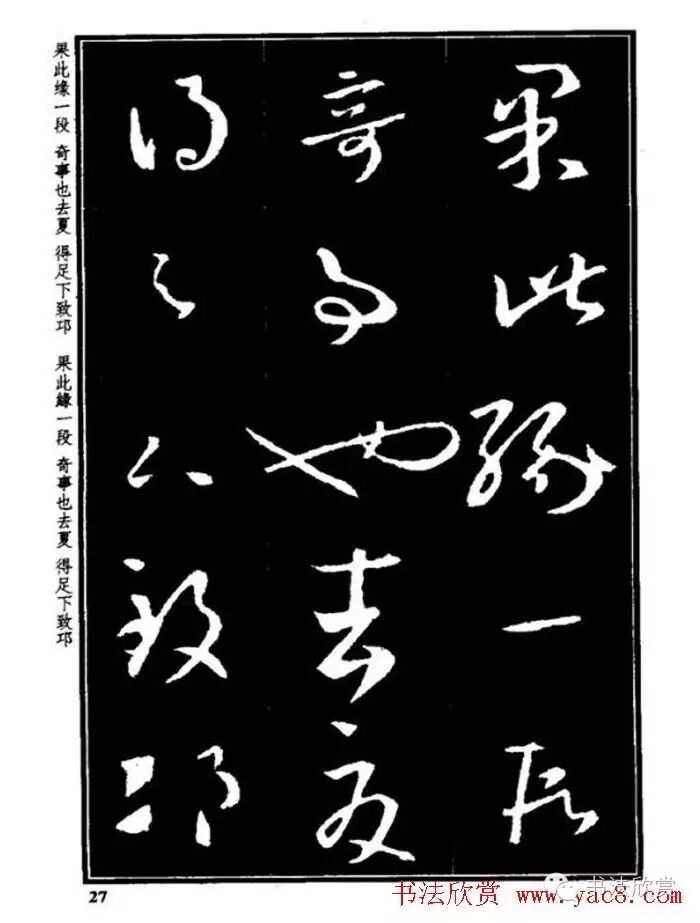 果此缘一段
奇事也去夏
得足下致邛
果此缘一段 奇事也去夏 得足下致邛
果此緣一段 奇事也去夏 得足下致邛
27
书法欣赏 www.yac8.com
书法欣赏